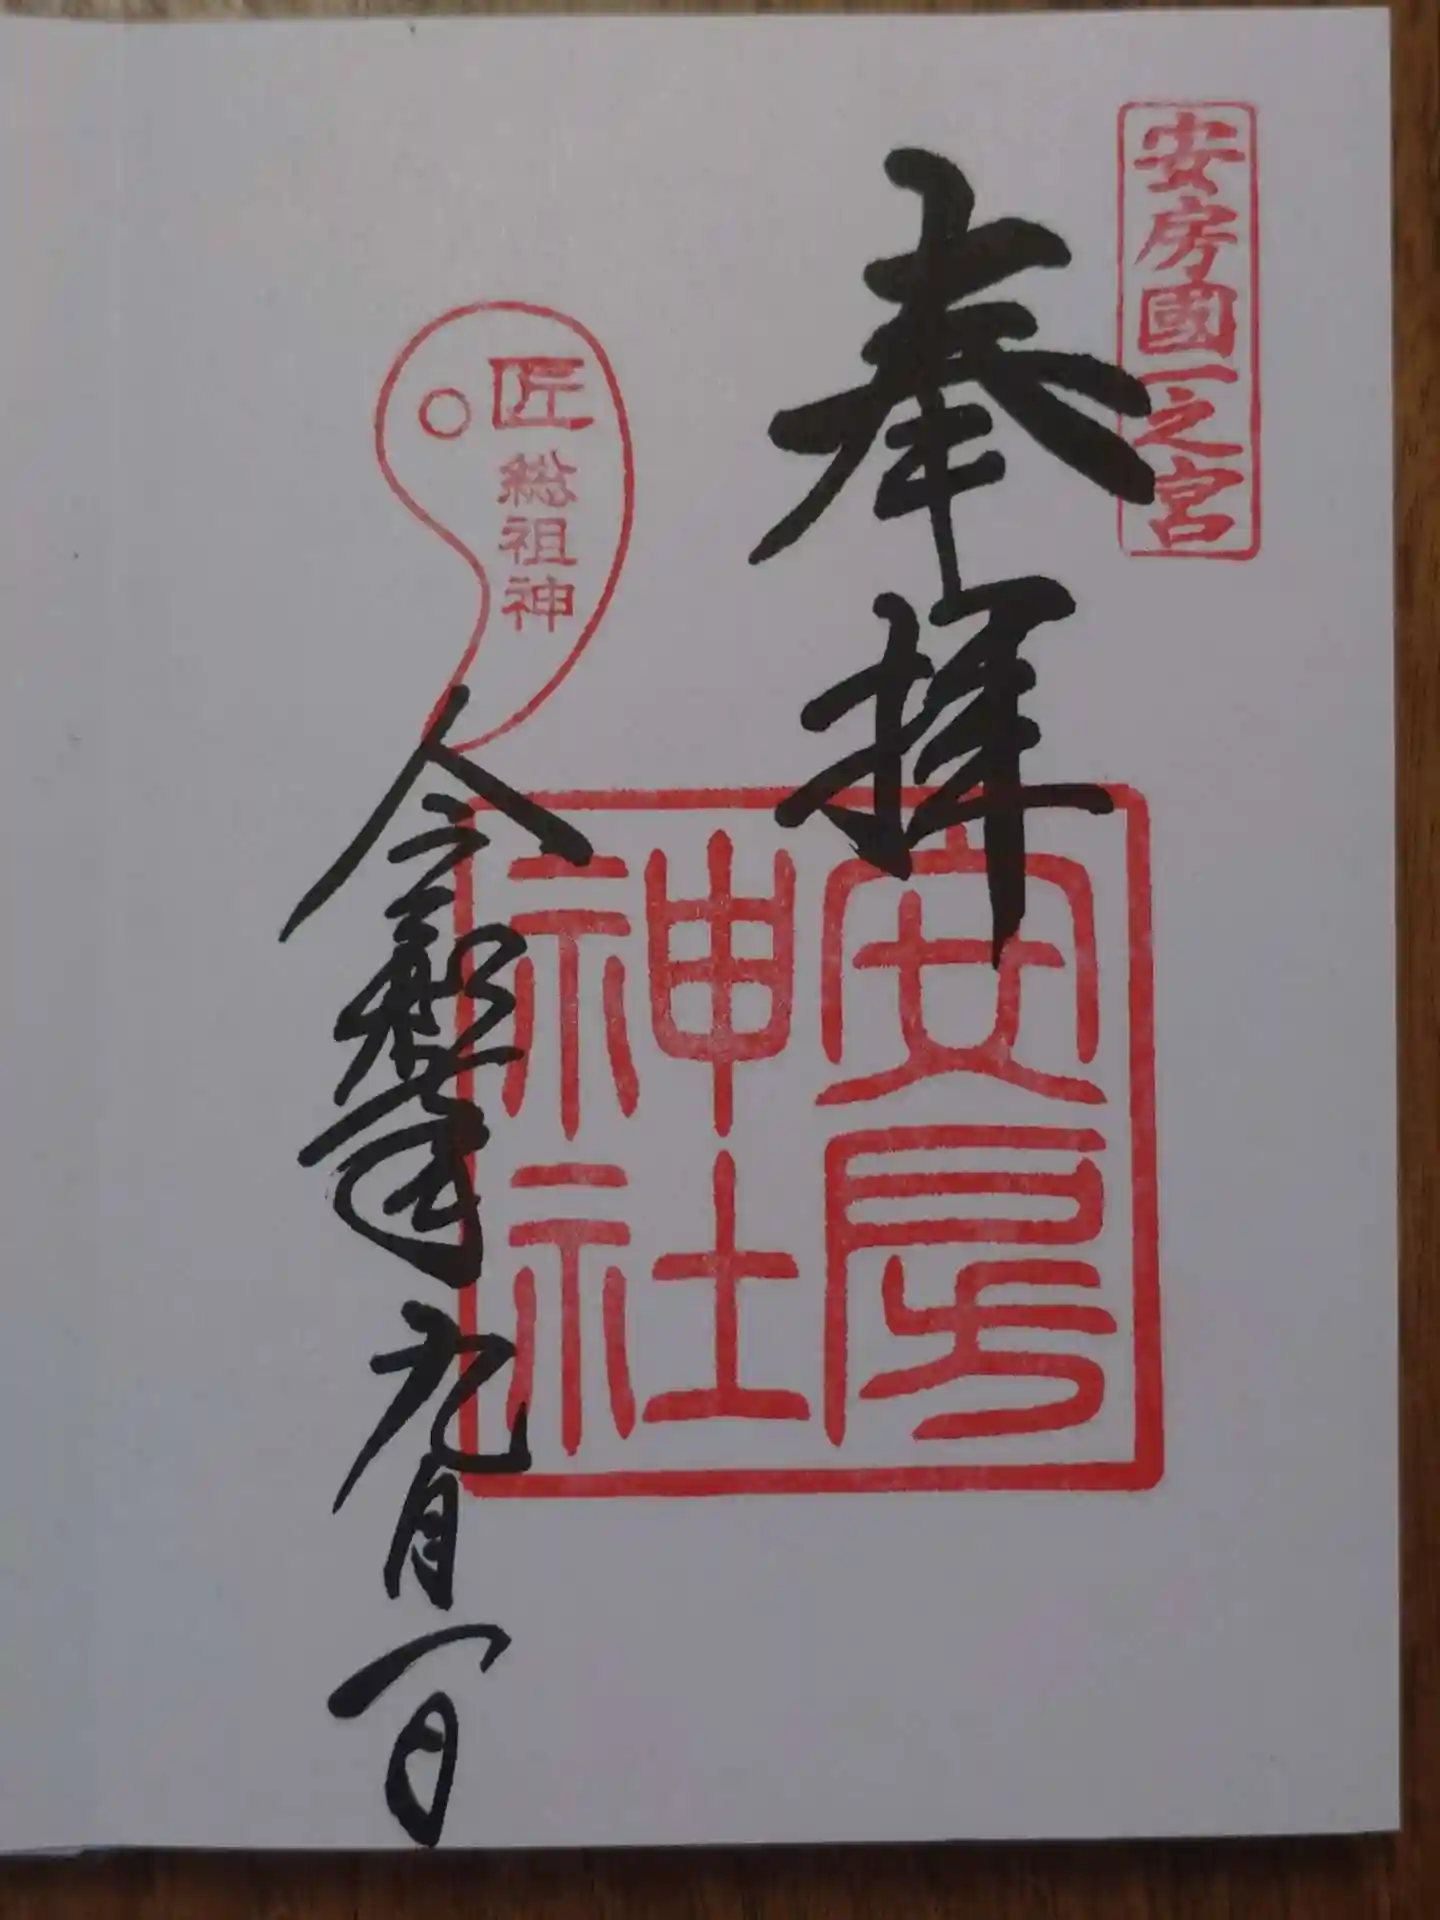 安房國一之宮
奉拝
安房
神社
匠総祖神
令和年九月一日